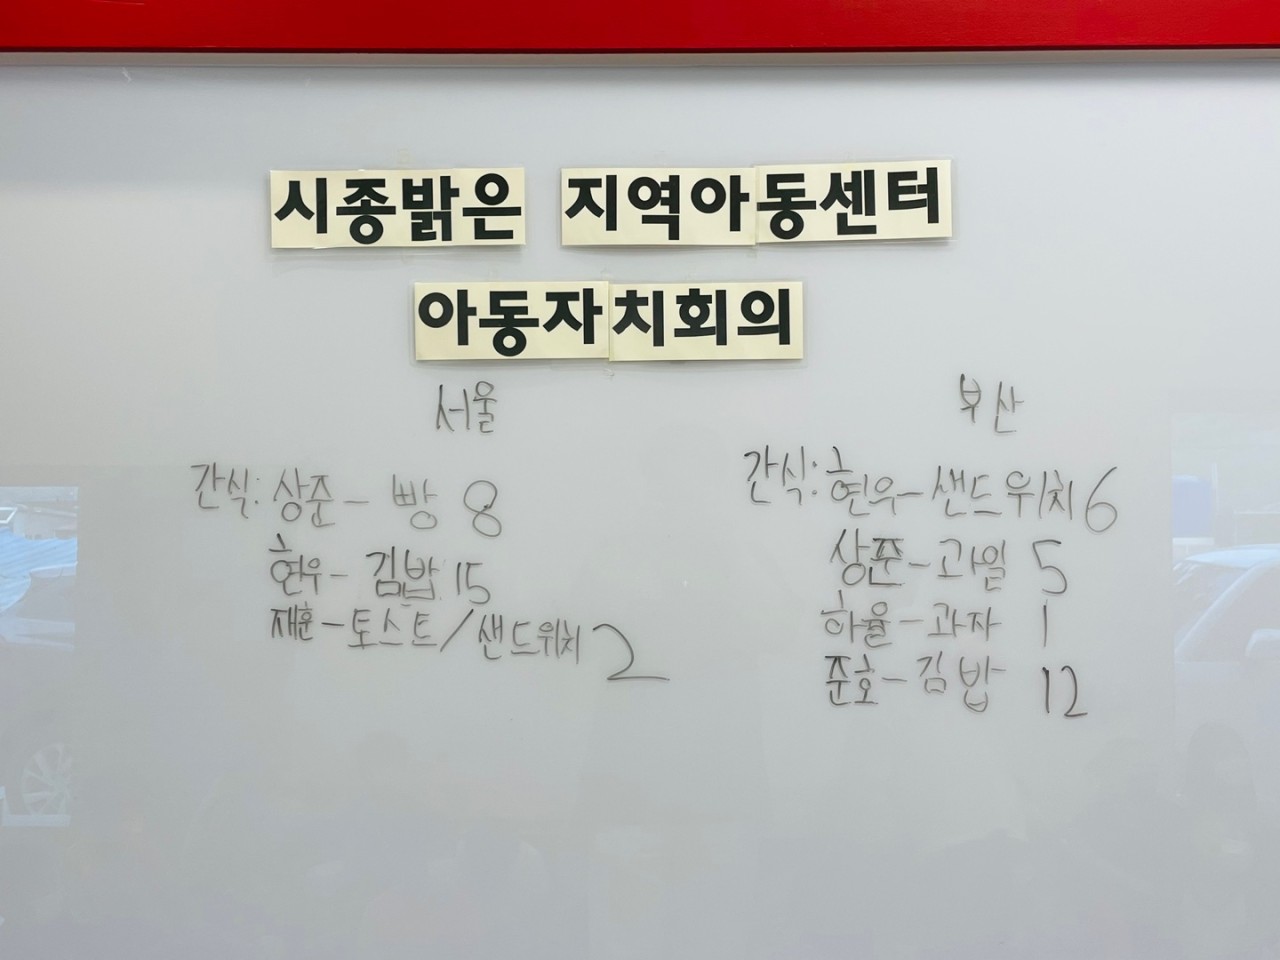 시종밝은 지역아동센터
아동자치회의
서울
간식: 상준 - 빵 8
현우 - 김밥 15
재훈 - 토스트/샌드위치 2
부산
간식: 현우 - 샌드위치 6
상준 - 과일 5
하율 - 과자 1
준호 - 김밥 12